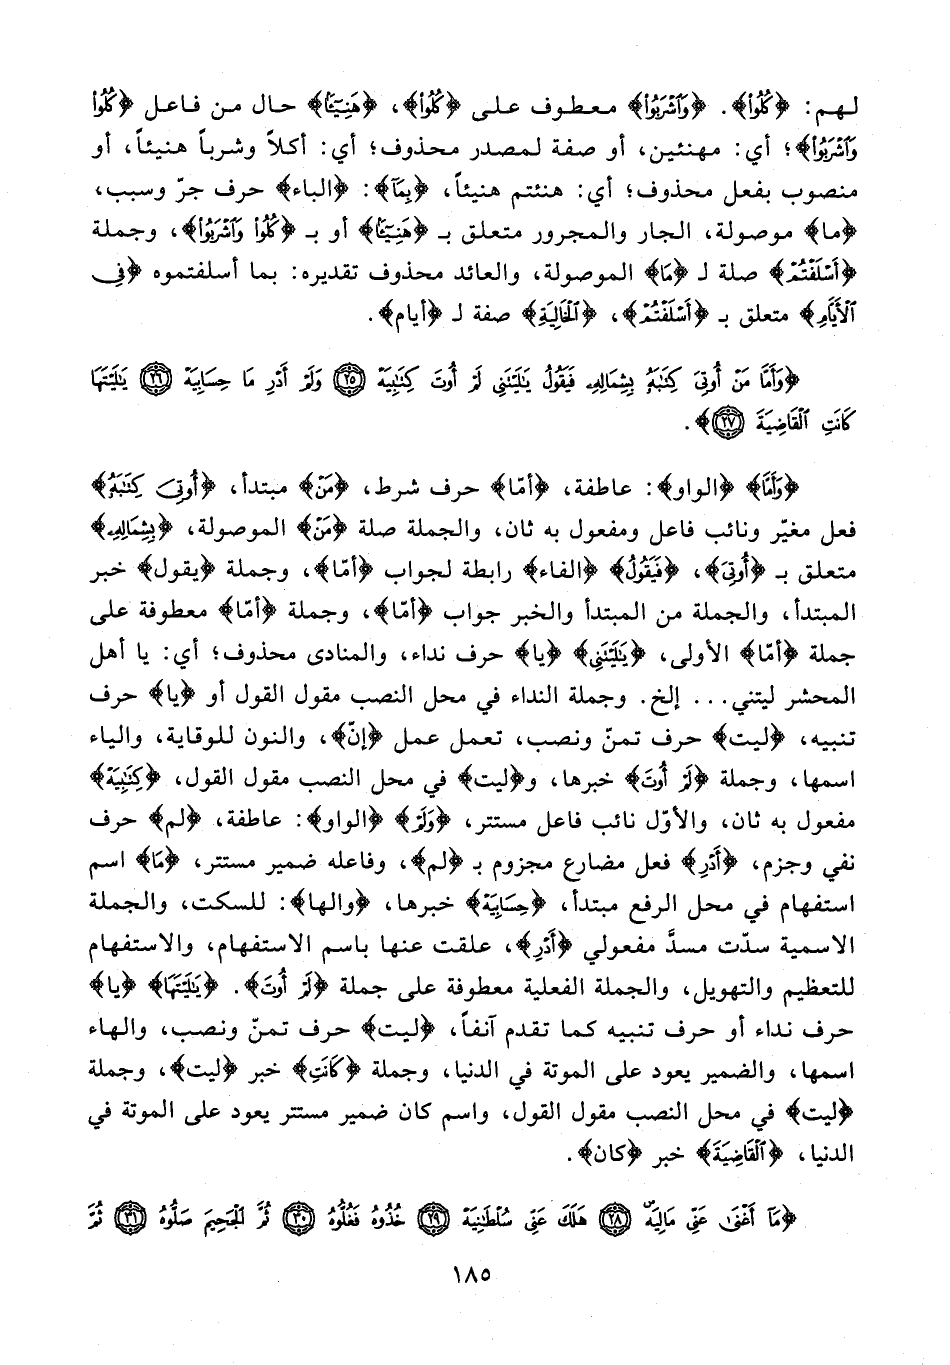 لهم: ﴿كُلُوا﴾. ﴿وَٱشْرَبُوا﴾ معطوف على ﴿كُلُوا﴾، ﴿هَنِيٓـَٔۢا﴾ حال من فاعل ﴿كُلُوا
وَٱشْرَبُوا﴾؛ أي: مهنئين، أو صفة لمصدر محذوف؛ أي: أكلاً وشرباً هنيئاً، أو
منصوب بفعل محذوف؛ أي: هنئتم هنيئاً، ﴿بِمَآ﴾: ﴿الباء﴾ حرف جرّ وسبب،
﴿ما﴾ موصولة، الجار والمجرور متعلق بـ ﴿هَنِيٓـَٔۢا﴾ أو بـ ﴿كُلُوا وَٱشْرَبُوا﴾، وجملة
﴿أَسْلَفْتُمْ﴾ صلة لـ ﴿مَا﴾ الموصولة، والعائد محذوف تقديره: بما أسلفتموه ﴿فِى
ٱلْأَيَّامِ﴾ متعلق بـ ﴿أَسْلَفْتُمْ﴾، ﴿ٱلْخَالِيَةِ﴾ صفة لـ ﴿أيام﴾.
﴿وَأَمَّا مَنْ أُوتِىَ كِتَٰبَهُۥ بِشِمَالِهِۦ فَيَقُولُ يَٰلَيْتَنِى لَمْ أُوتَ كِتَٰبِيَهْ ٢٥ وَلَمْ أَدْرِ مَا حِسَابِيَهْ ٢٦ يَٰلَيْتَهَا
كَانَتِ ٱلْقَاضِيَةَ ٢٧﴾.
﴿وَأَمَّا﴾ ﴿الواو﴾: عاطفة، ﴿أمّا﴾ حرف شرط، ﴿مَنْ﴾ مبتدأ، ﴿أُوتِىَ كِتَٰبَهُۥ﴾
فعل مغيّر ونائب فاعل ومفعول به ثان، والجملة صلة ﴿مَنْ﴾ الموصولة، ﴿بِشِمَالِهِۦ﴾
متعلق بـ ﴿أُوتِىَ﴾، ﴿فَيَقُولُ﴾ ﴿الفاء﴾ رابطة لجواب ﴿أمّا﴾، وجملة ﴿يقول﴾ خبر
المبتدأ، والجملة من المبتدأ والخبر جواب ﴿أمّا﴾، وجملة ﴿أمّا﴾ معطوفة على
جملة ﴿أمّا﴾ الأولى، ﴿يَٰلَيْتَنِى﴾ ﴿يا﴾ حرف نداء، والمنادى محذوف؛ أي: يا أهل
المحشر ليتني... إلخ. وجملة النداء في محل النصب مقول القول أو ﴿يا﴾ حرف
تنبيه، ﴿ليت﴾ حرف تمنّ ونصب، تعمل عمل ﴿إنّ﴾، والنون للوقاية، والياء
اسمها، وجملة ﴿لَمْ أُوتَ﴾ خبرها، و﴿ليت﴾ في محل النصب مقول القول، ﴿كِتَٰبِيَهْ﴾
مفعول به ثان، والأوّل نائب فاعل مستتر، ﴿وَلَمْ﴾ ﴿الواو﴾: عاطفة، ﴿لم﴾ حرف
نفي وجزم، ﴿أَدْرِ﴾ فعل مضارع مجزوم بـ ﴿لم﴾، وفاعله ضمير مستتر، ﴿مَا﴾ اسم
استفهام في محل الرفع مبتدأ، ﴿حِسَابِيَهْ﴾ خبرها، ﴿والها﴾: للسكت، والجملة
الاسمية سدّت مسدَّ مفعولي ﴿أَدْرِ﴾، علقت عنها باسم الاستفهام، والاستفهام
للتعظيم والتهويل، والجملة الفعلية معطوفة على جملة ﴿لَمْ أُوتَ﴾. ﴿يَٰلَيْتَهَا﴾ ﴿يا﴾
حرف نداء أو حرف تنبيه كما تقدم آنفاً، ﴿ليت﴾ حرف تمنّ ونصب، والهاء
اسمها، والضمير يعود على الموتة في الدنيا، وجملة ﴿كَانَتِ﴾ خبر ﴿ليت﴾، وجملة
﴿ليت﴾ في محل النصب مقول القول، واسم كان ضمير مستتر يعود على الموتة في
الدنيا، ﴿ٱلْقَاضِيَةَ﴾ خبر ﴿كان﴾.
﴿مَآ أَغْنَىٰ عَنِّى مَالِيَهْ ۜ ٢٨ هَلَكَ عَنِّى سُلْطَٰنِيَهْ ٢٩ خُذُوهُ فَغُلُّوهُ ٣٠ ثُمَّ ٱلْجَحِيمَ صَلُّوهُ ٣١ ثُمَّ
١٨٥